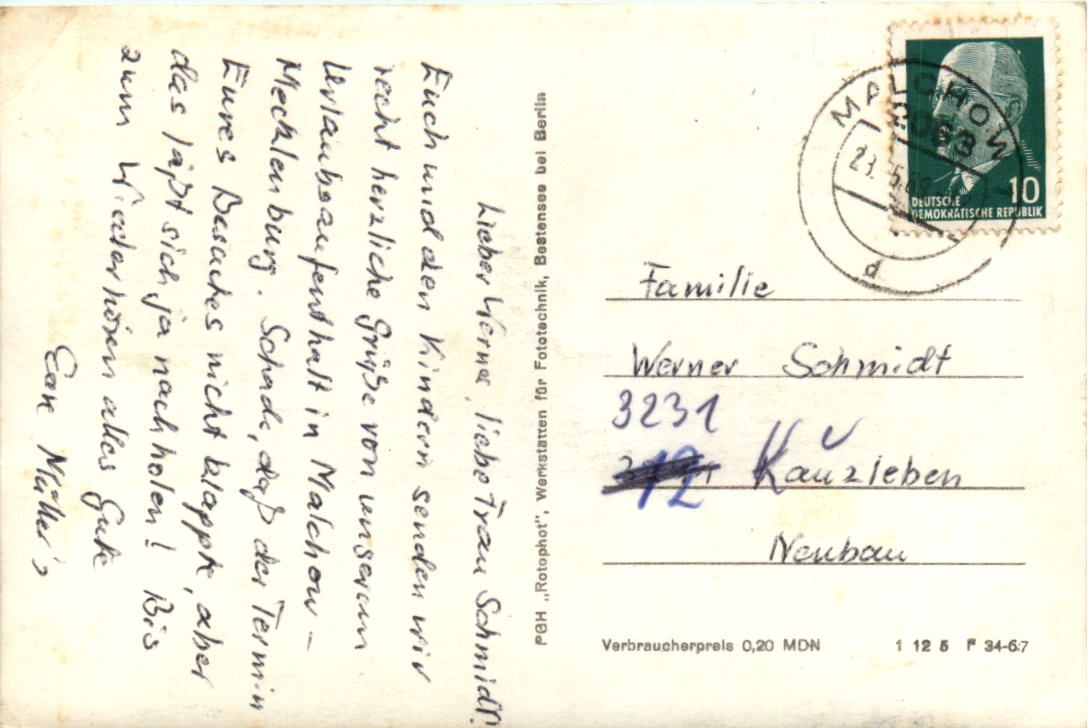 Lieber Werner, liebe Frau Schmidt!
Euch und den Kindern senden wir
recht herzliche Grüße von unserem
Urlaubsaufenthalt in Malchow-
Mecklenburg. Schade, daß der Termin
Eures Besuches nicht klappte, aber
das läßt sich ja nachholen! Bis
zum Wiederhören alles Gute
PGH „Rotophot", Werkstätten für Fototechnik, Bestensee bei Berlin
MALCHOW
2063
d
10
DEUTSCHE
DEMOKRATISCHE REPUBLIK
Familie
Werner Schmidt
3231
12 Kauzleben
Neubau
Verbraucherpreis 0,20 MDN 1 12 5 F 34-67